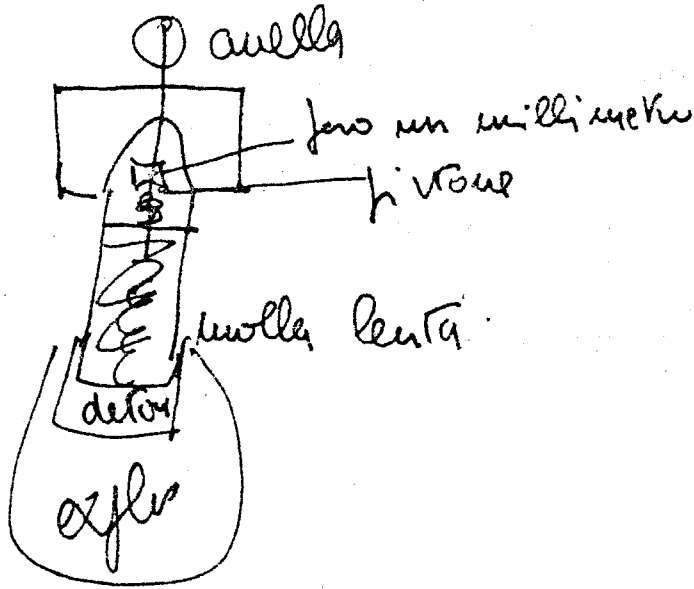 anella
foro un millimetro
pistone
molla lenta.
deton
explo